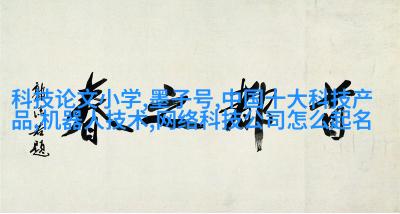 首都之春
郭沫若题
科技论文小学,墨子号,中国十大科技产
品,机器人技术,网络科技公司怎么起名